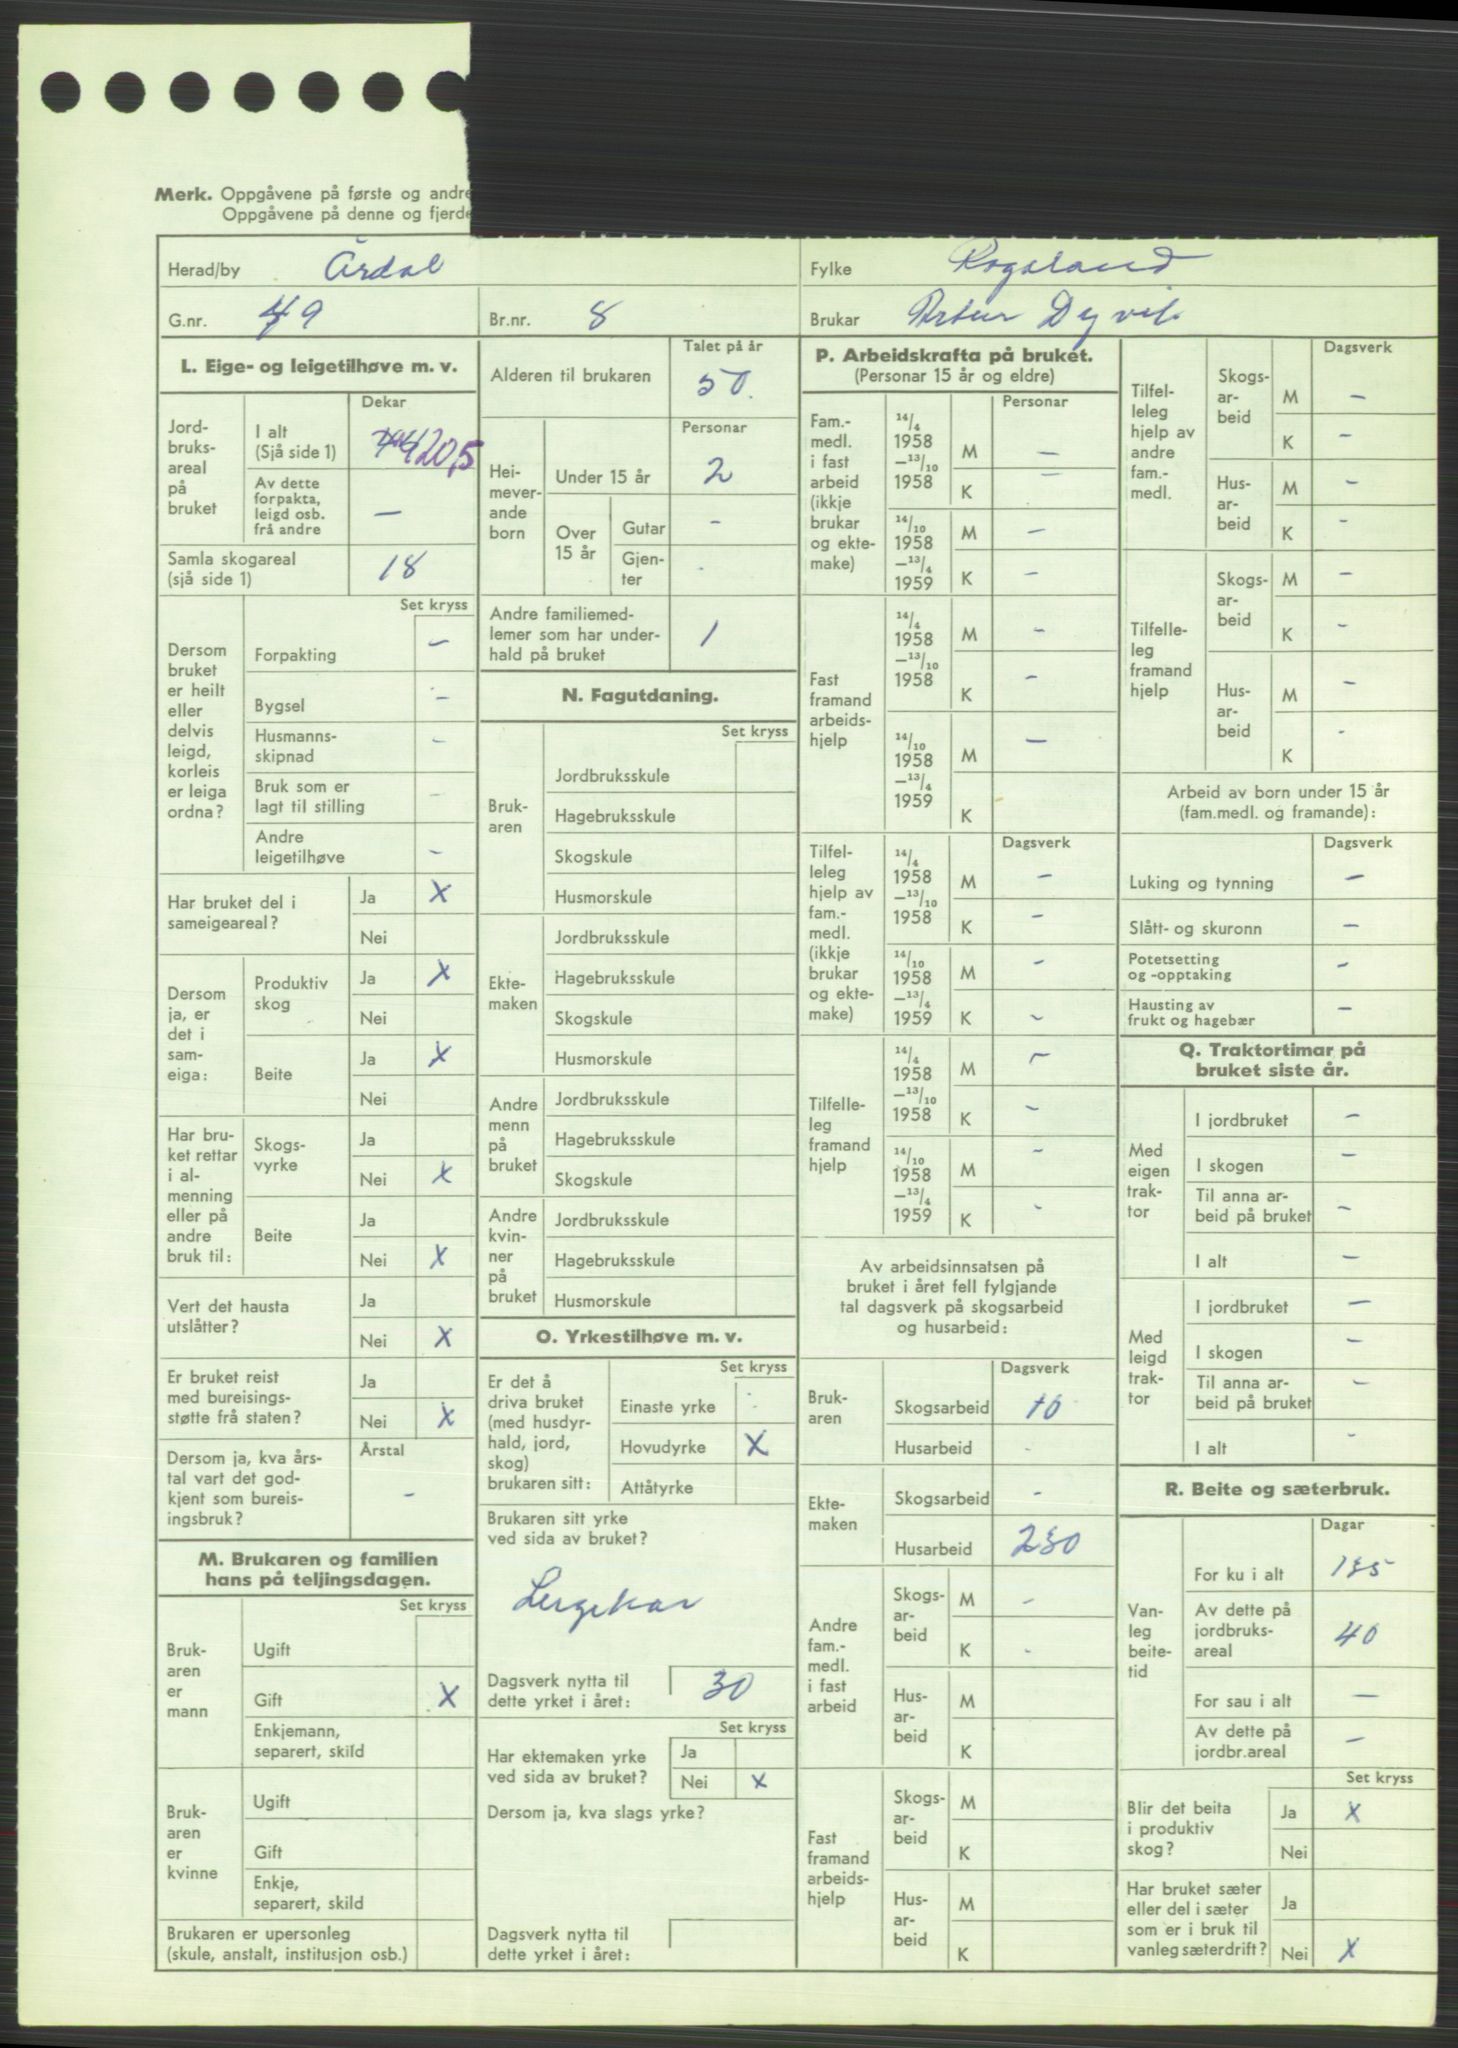 Merk. Oppgåvene på første og andre
Oppgåvene på denne og fjerde
Herad/by Årdal
Fylke Rogaland
G.nr. 49
Br.nr. 8
Brukar Artur Dyvik
L. Eige- og leigetilhøve m. v.
Dekar
Jord-
bruks-
areal
på
bruket
I alt
(Sjå side 1) 420,5
Av dette
forpakta,
leigd osb.
frå andre —
Samla skogareal
(sjå side 1) 18
Set kryss
Dersom
bruket
er heilt
eller
delvis
leigd,
korleis
er leiga
ordna?
Forpakting –
Bygsel –
Husmanns-
skipnad –
Bruk som er
lagt til stilling –
Andre
leigetilhøve –
Har bruket del i
sameigeareal?
Ja X
Nei
Dersom
ja, er
det i
sam-
eiga:
Produktiv
skog
Ja X
Nei
Beite
Ja X
Nei
Har bru-
ket rettar
i al-
menning
eller på
andre
bruk til:
Skogs-
vyrke
Ja
Nei X
Beite
Ja
Nei X
Vert det hausta
utslåtter?
Ja
Nei X
Er bruket reist
med bureisings-
støtte frå staten?
Ja
Nei X
Dersom ja, kva års-
tal vart det god-
kjent som bureis-
ingsbruk?
Årstal
–
M. Brukaren og familien
hans på teljingsdagen.
Set kryss
Bruk-
aren
er
mann
Ugift
Gift X
Enkjemann,
separert, skild
Bruk-
aren
er
kvinne
Ugift
Gift
Enkje,
separert, skild
Brukaren er upersonleg
(skule, anstalt, institusjon osb.)
Talet på år
Alderen til brukaren 50.
Personar
Hei-
mever-
ande
born
Under 15 år 2
Over
15 år
Gutar –
Gjen-
ter -
Andre familiemed-
lemer som har under-
hald på bruket 1
N. Fagutdaning.
Set kryss
Bruk-
aren
Jordbruksskule
Hagebruksskule
Skogskule
Husmorskule
Ekte-
maken
Jordbruksskule
Hagebruksskule
Skogskule
Husmorskule
Andre
menn
på
bruket
Jordbruksskule
Hagebruksskule
Skogskule
Andre
kvin-
ner
på
bruket
Jordbruksskule
Hagebruksskule
Husmorskule
O. Yrkestilhøve m. v.
Set kryss
Er det å
driva bruket
(med husdyr-
hald, jord,
skog)
brukaren sitt:
Einaste yrke -
Hovudyrke X
Attåtyrke
Brukaren sitt yrke
ved sida av bruket?
Dagsverk nytta til
dette yrket i året: 30
Set kryss
Har ektemaken yrke
ved sida av bruket?
Ja
Nei X
Dersom ja, kva slags yrke?
Dagsverk nytta til
dette yrket i året:
P. Arbeidskrafta på bruket.
(Personar 15 år og eldre)
Personar
Fam.-
medl.
i fast
arbeid
(ikkje
brukar
og ekte-
make)
14/4
1958
—13/10
1958
M —
K –
14/10
1958
—13/4
1959
M –
K –
Fast
framand
arbeids-
hjelp
14/4
1958
—13/10
1958
M –
K –
14/10
1958
—13/4
1959
M —
K
Dagsverk
Tilfel-
leleg
hjelp av
fam.-
medl.
(ikkje
brukar
og ekte-
make)
14/4
1958
—13/10
1958
M –
K –
14/10
1958
—13/4
1959
M –
K –
Tilfelle-
leg
framand
hjelp
14/4
1958
—13/10
1958
M –
K –
14/10
1958
—13/4
1959
M –
K –
Av arbeidsinnsatsen på
bruket i året fell fylgjande
tal dagsverk på skogsarbeid
og husarbeid:
Dagsverk
Bruk-
aren
Skogsarbeid 10
Husarbeid -
Ekte-
maken
Skogsarbeid -
Husarbeid 250
Andre
fam.-
medl.
i fast
arbeid
Skogs-
ar-
beid
M –
K -
Hus-
ar-
beid
M
K
Fast
framand
arbeids-
hjelp
Skogs-
ar-
beid
M
K
Hus-
ar-
beid
M
K
Dagsverk
Tilfel-
leleg
hjelp av
andre
fam.-
medl.
Skogs-
ar-
beid
M –
K –
Hus-
ar-
beid
M –
K –
Tilfelle-
leg
framand
hjelp
Skogs-
ar-
beid
M –
K –
Hus-
ar-
beid
M –
K -
Arbeid av born under 15 år
(fam.medl. og framande):
Dagsverk
Luking og tynning –
Slått- og skuronn –
Potetsetting
og -opptaking –
Hausting av
frukt og hagebær –
Q. Traktortimar på
bruket siste år.
Med
eigen
trak-
tor
I jordbruket –
I skogen –
Til anna ar-
beid på bruket –
I alt –
Med
leigd
trak-
tor
I jordbruket –
I skogen –
Til anna ar-
beid på bruket –
I alt -
R. Beite og sæterbruk.
Dagar
Van-
leg
beite-
tid
For ku i alt 135
Av dette på
jordbruks-
areal 40
For sau i alt —
Av dette på
jordbr.areal –
Set kryss
Blir det beita
i produktiv
skog?
Ja X
Nei
Har bruket sæter
eller del i sæter
som er i bruk til
vanleg sæterdrift?
Ja
Nei X